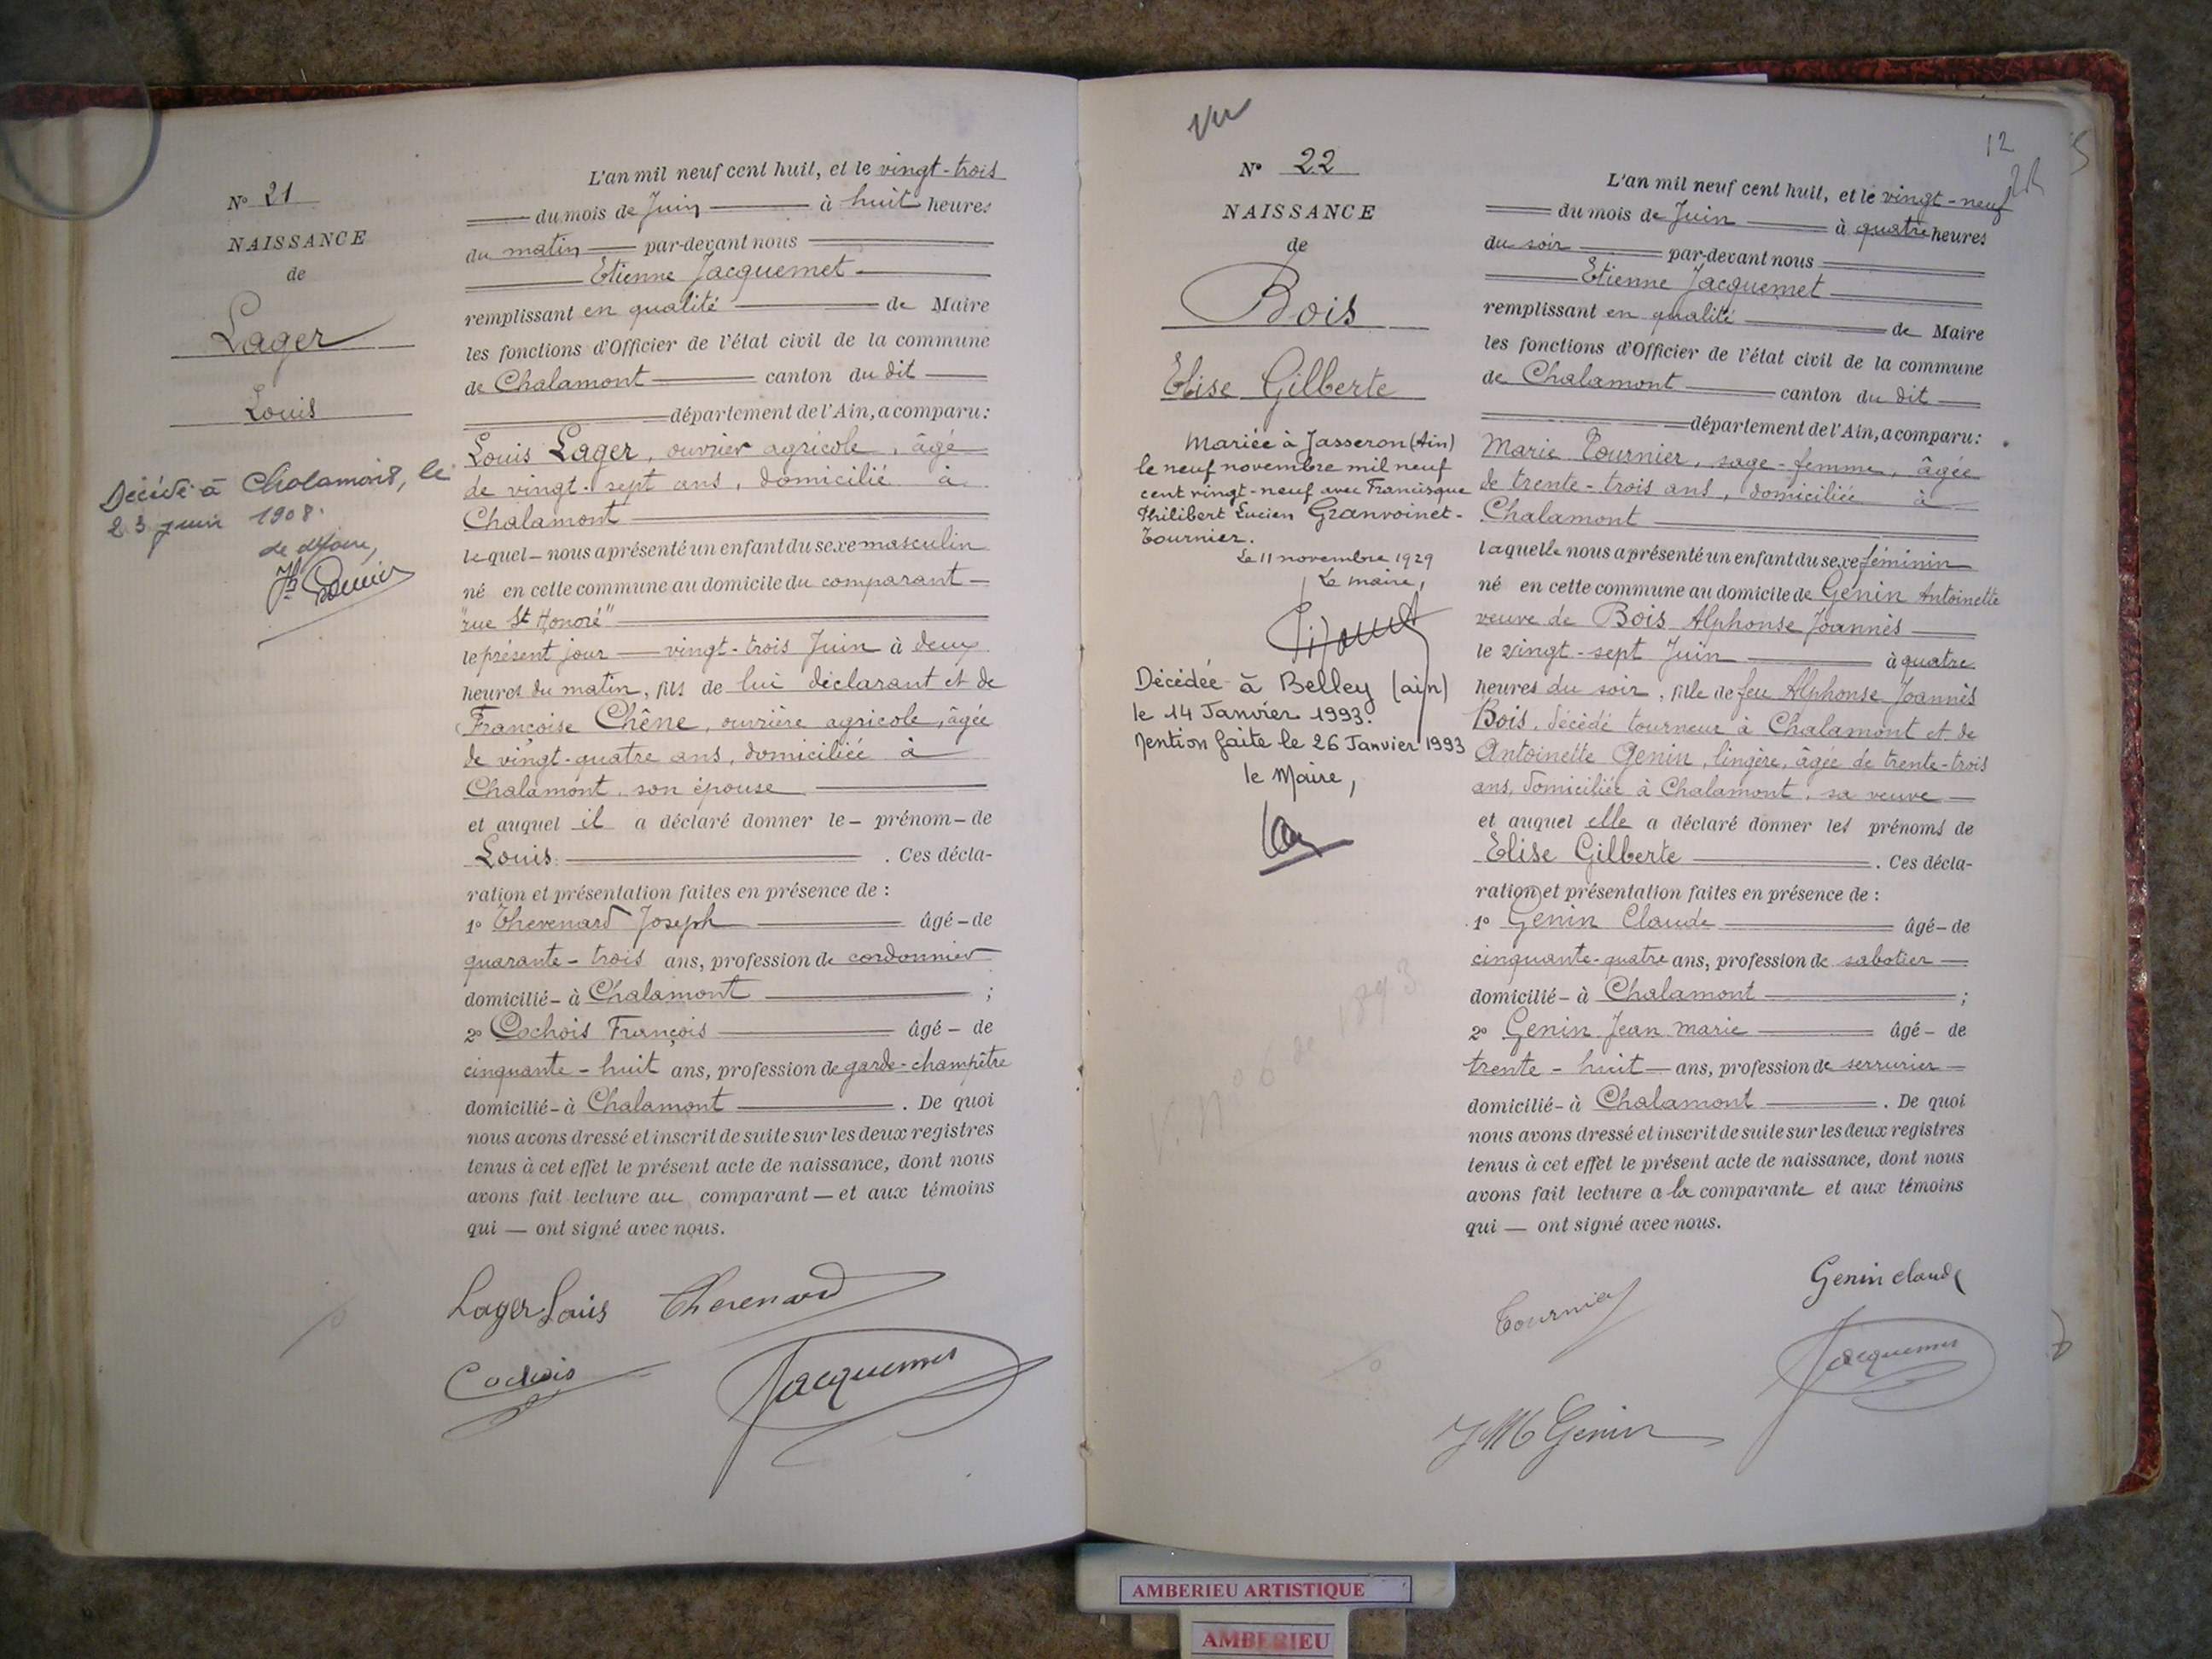 N° 21
NAISSANCE
de
Lager
Louis
Décédé à Chalamont, le
23 juin 1908.
L'an mil neuf cent huit, et le vingt-trois
du mois de Juin à huit heures
du matin par-devant nous
Etienne Jacquemet
remplissant en qualité de Maire
les fonctions d'Officier de l'état civil de la commune
de Chalamont canton du dit
département de l'Ain, a comparu:
Louis Lager, ouvrier agricole, âgé
de vingt-sept ans, domicilié à
Chalamont
lequel nous a présenté un enfant du sexe masculin
né en cette commune au domicile du comparant
"rue St Honoré"
le présent jour vingt-trois Juin à deux
heures du matin, fils de lui déclarant et de
Françoise Chêne, ouvrière agricole, âgée
de vingt-quatre ans, domiciliée à
Chalamont, son épouse
et auquel il a déclaré donner le prénom de
Louis. . Ces décla-
ration et présentation faites en présence de :
1° Thevenard Joseph âgé de
quarante-trois ans, profession de cordonnier
domicilié à Chalamont ;
2° Cochois François âgé de
cinquante-huit ans, profession de garde-champêtre
domicilié à Chalamont . De quoi
nous avons dressé et inscrit de suite sur les deux registres
tenus à cet effet le présent acte de naissance, dont nous
avons fait lecture au comparant et aux témoins
qui ont signé avec nous.
Lager Louis Thevenard
Cochois Jacquemet
Vu
12
N° 22
NAISSANCE
de
Bois
Elise Gilberte
Mariée à Jasseron (Ain)
le neuf novembre mil neuf
cent vingt-neuf avec Francisque
Philibert Lucien Granvoinet-
Tournier.
Le 11 novembre 1929
Le maire,
Décédée à Belley (ain)
le 14 Janvier 1993.
Mention faite le 26 Janvier 1993
le Maire,
L'an mil neuf cent huit, et le vingt-neuf
du mois de Juin à quatre heures
du soir par-devant nous
Etienne Jacquemet
remplissant en qualité de Maire
les fonctions d'Officier de l'état civil de la commune
de Chalamont canton du dit
département de l'Ain, a comparu:
Marie Tournier, sage-femme, âgée
de trente-trois ans, domiciliée à
Chalamont
laquelle nous a présenté un enfant du sexe féminin
né en cette commune au domicile de Genin Antoinette
veuve de Bois Alphonse Joannès
le vingt-sept Juin à quatre
heures du soir, fille de feu Alphonse Joannès
Bois, décédé tourneur à Chalamont et de
Antoinette Genin, lingère, âgée de trente-trois
ans, domiciliée à Chalamont, sa veuve
et auquel elle a déclaré donner les prénoms de
Elise Gilberte . Ces décla-
ration et présentation faites en présence de :
1° Genin Claude âgé de
cinquante-quatre ans, profession de sabotier
domicilié à Chalamont ;
2° Genin Jean Marie âgé de
trente-huit ans, profession de serrurier
domicilié à Chalamont . De quoi
nous avons dressé et inscrit de suite sur les deux registres
tenus à cet effet le présent acte de naissance, dont nous
avons fait lecture a la comparante et aux témoins
qui ont signé avec nous.
Tournier Genin Claude
Jacquemet
JM Genin
AMBERIEU ARTISTIQUE
AMBERIEU